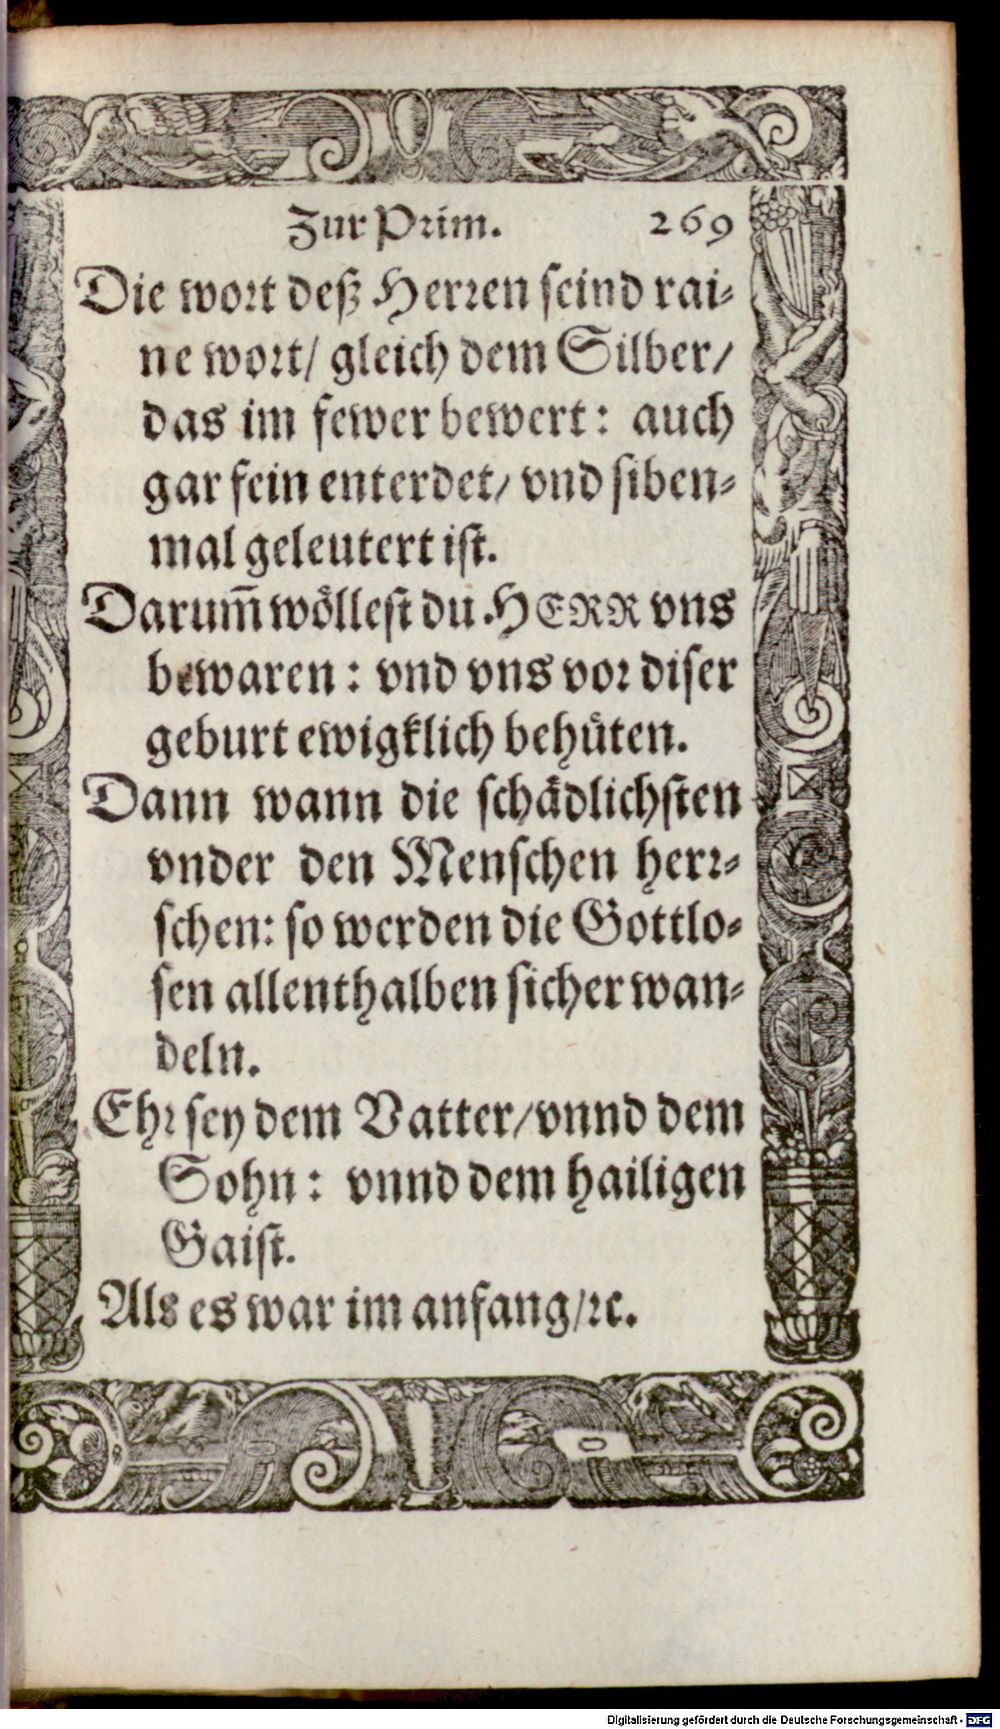 Zur Prim. 269
Die wort deß Herren seind rai-
ne wort/ gleich dem Silber/
das im fewer bewert: auch
gar fein enterdet/ vnd siben-
mal geleutert ist.
Darum̃ wöllest du HERR vns
bewaren: vnd vns vor diser
geburt ewigklich behüten.
Dann wann die schädlichsten
vnder den Menschen herr-
schen: so werden die Gottlo-
sen allenthalben sicher wan-
deln.
Ehr sey dem Vatter/ vnnd dem
Sohn: vnnd dem hailigen
Gaist.
Als es war im anfang/ ꝛc.
Digitalisierung gefördert durch die Deutsche Forschungsgemeinschaft - DFG